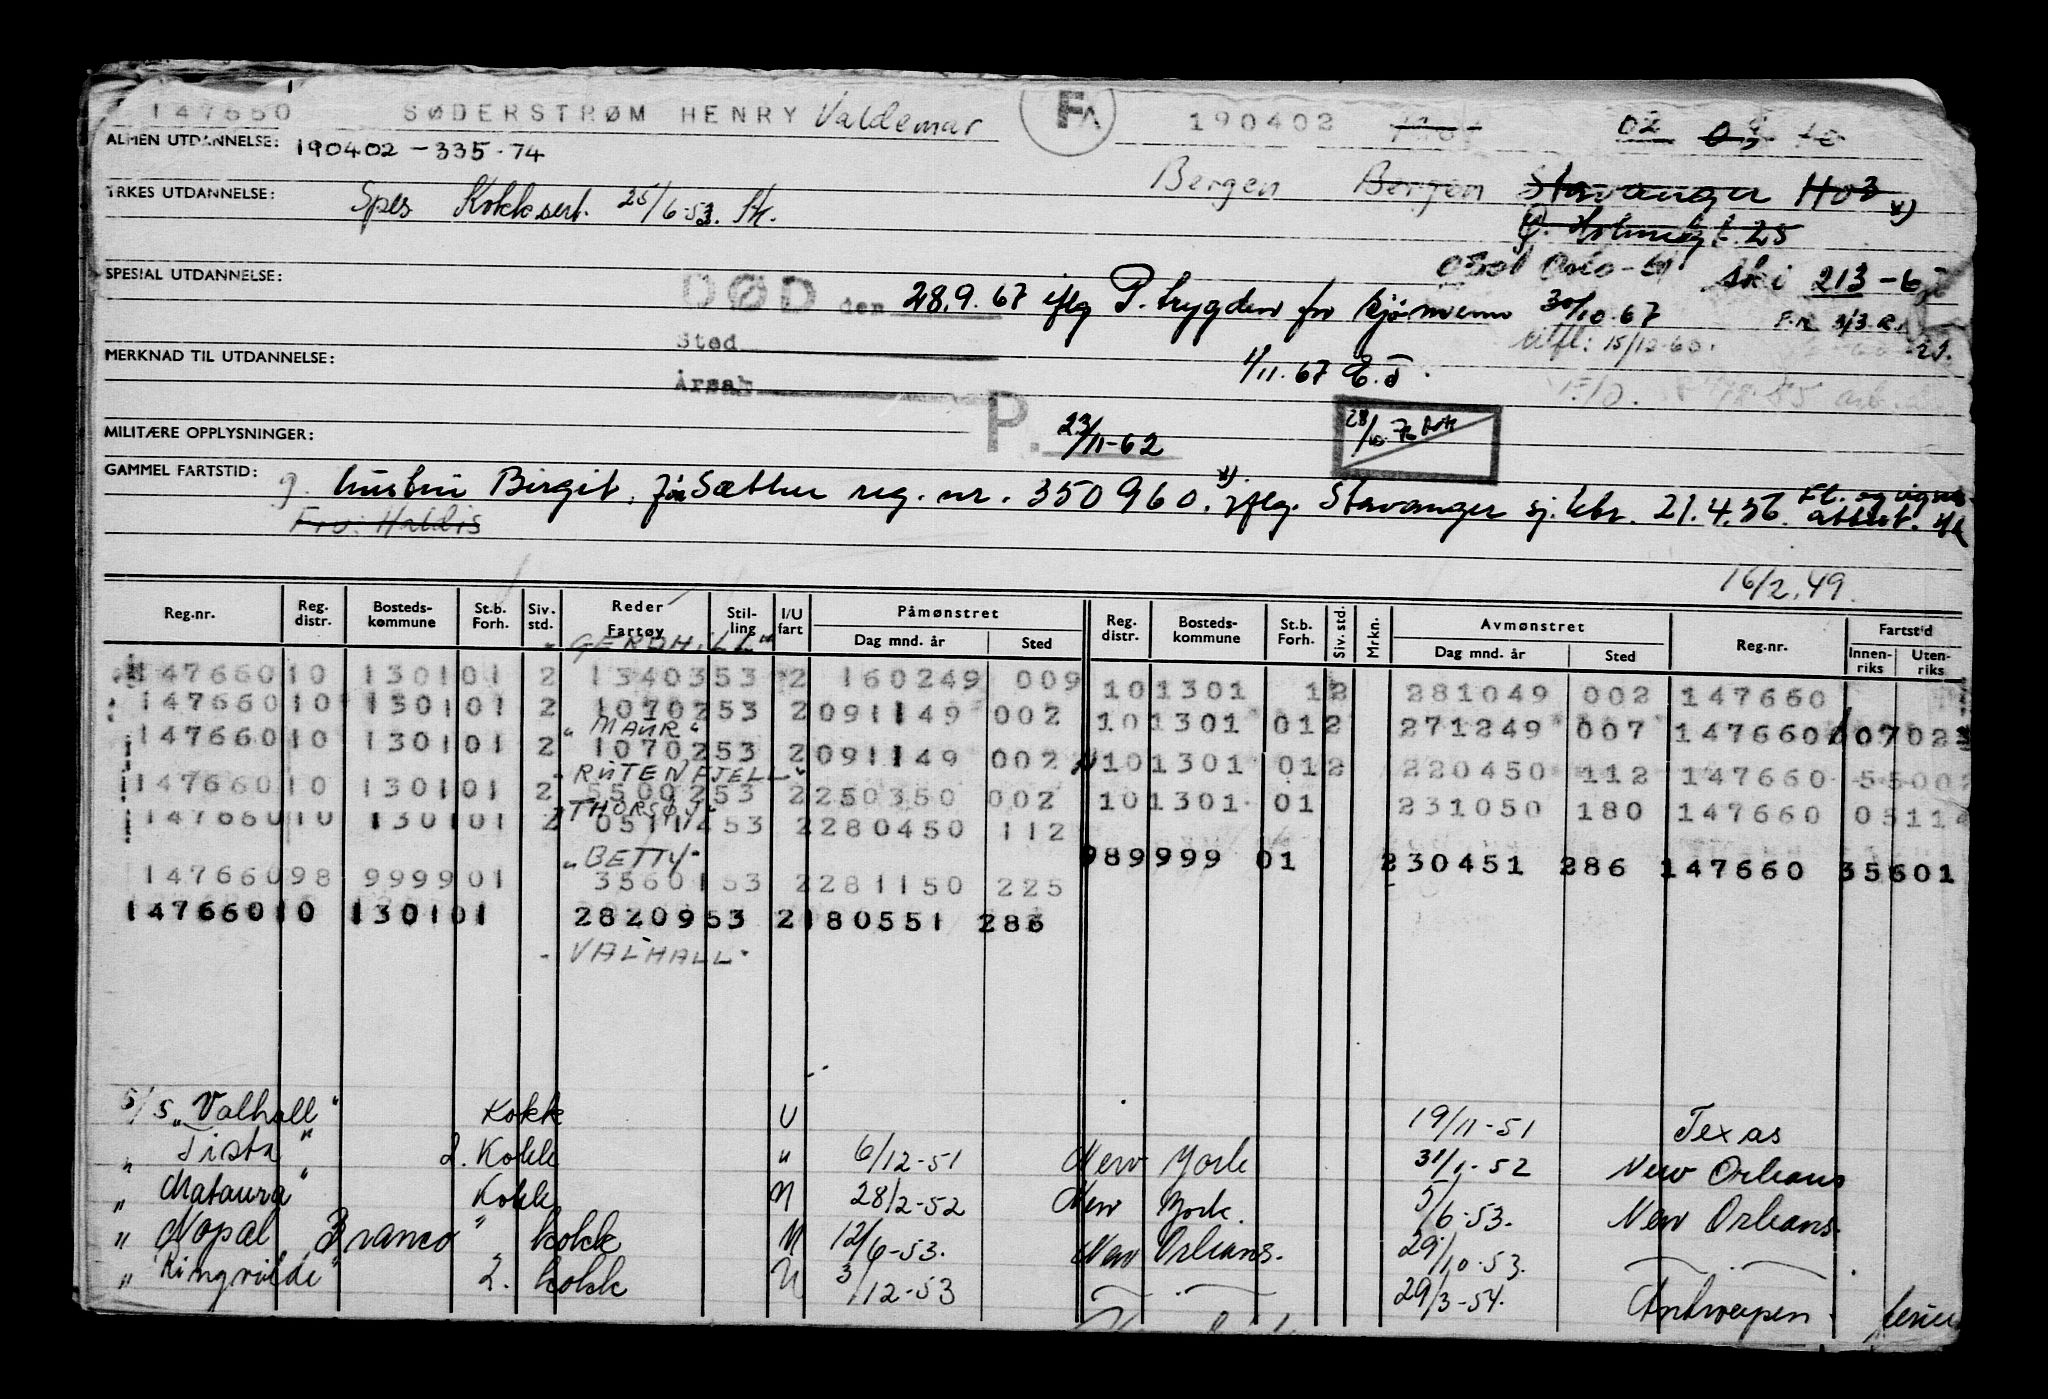 147660 SØDERSTRØM HENRY Valdemar FA 190402 02
ALMEN UTDANNELSE: 190402-335.74
YRKES UTDANNELSE: Spes Kokksert. 25/6-53. Bergen Bergen Stavanger
SPESIAL UTDANNELSE:
DØD den 28.9.67 iflg P. trygden for sjømenn 30/10.67
Sted
Årsak
utfl: 15/12-60.
MERKNAD TIL UTDANNELSE:
1/11.67
MILITÆRE OPPLYSNINGER:
P. 23/11-62
GAMMEL FARTSTID: g. hustru Birgit, Sæther reg. nr. 350960. iflg. Stavanger sj. ktr. 21.4.56.
Fru: Haldis
16/2.49.
Reg.nr. Reg. distr. Bosteds-kommune St.b. Forh. Siv. std. Reder Fartøy Stil-ling I/U fart Påmønstret Dag mnd. år Sted Reg. distr. Bosteds-kommune St.b. Forh. Siv. std. Mrkn. Avmønstret Dag mnd. år Sted Reg.nr. Fartstid Innen-riks Uten-riks
147660 10 1301 01 2 13403 53 2 160249 009 10 1301 1 2 281049 002 147660
147660 10 1301 01 2 10702 53 2 091149 002 10 1301 01 2 271249 007 147660 07023
"MAUR"
147660 10 1301 01 2 10702 53 2 091149 002 10 1301 01 2 220450 112 147660 5500
"RUTENFJELL"
147660 10 1301 01 2 55002 53 2 250350 002 10 1301 01 231050 180 147660 05114
147660 10 1301 01 2 05114 53 2 280450 112
"BETTY"
989999 01 230451 286 147660 35601
147660 98 9999 01 35601 53 2 281150 225
147660 10 1301 01 28209 53 2 180551 286
"VALHALL"
S/S "Valhall" Kokk U 19/11-51 Texas
" Tista" 2. Kokk " 6/12-51 New York 31/1-52 New Orleans
" Mataura" Kokk 28/2-52 New York. 5/6-53. New Orleans.
" Nopal Branco" kokk 12/6-53. New Orleans. 29/10.53.
" Ringvilde" 2. kokk 3/12-53 29/3-54. Antwerpen.